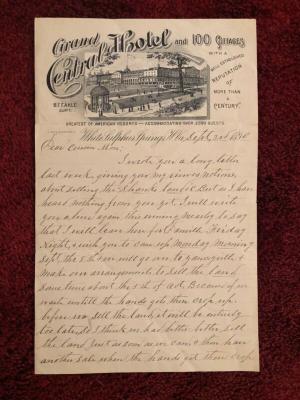 Grand
Central Hotel and 100 Cottages
WITH A
WELL ESTABLISHED
REPUTATION
OF
MORE THAN
A
CENTURY."
B.F. EAKLE
SUPT.
GREATEST OF AMERICAN RESORTS — ACCOMMODATING OVER 2000 GUESTS
White Sulphur Springs, W.Va. Sept. 2nd
Dear Cousin
I wrote you a long letter
last week, giving you my views
about selling the land. But as I have
heard nothing from you yet, I will write
you a line again, this evening merely to say
that I will leave here for Danville Friday
Night, & wish you to can up Monday Morning
Sept. the 8th & we will go on to &
Make our arrangements to sell the land
some time about the 1st of Oct. Because if we
wait until the hands get their crop up
before we sell the land, it will be entirely
too late, so I think we had better sell
the land just as soon as we can & then have
another sale when the hands get their crop